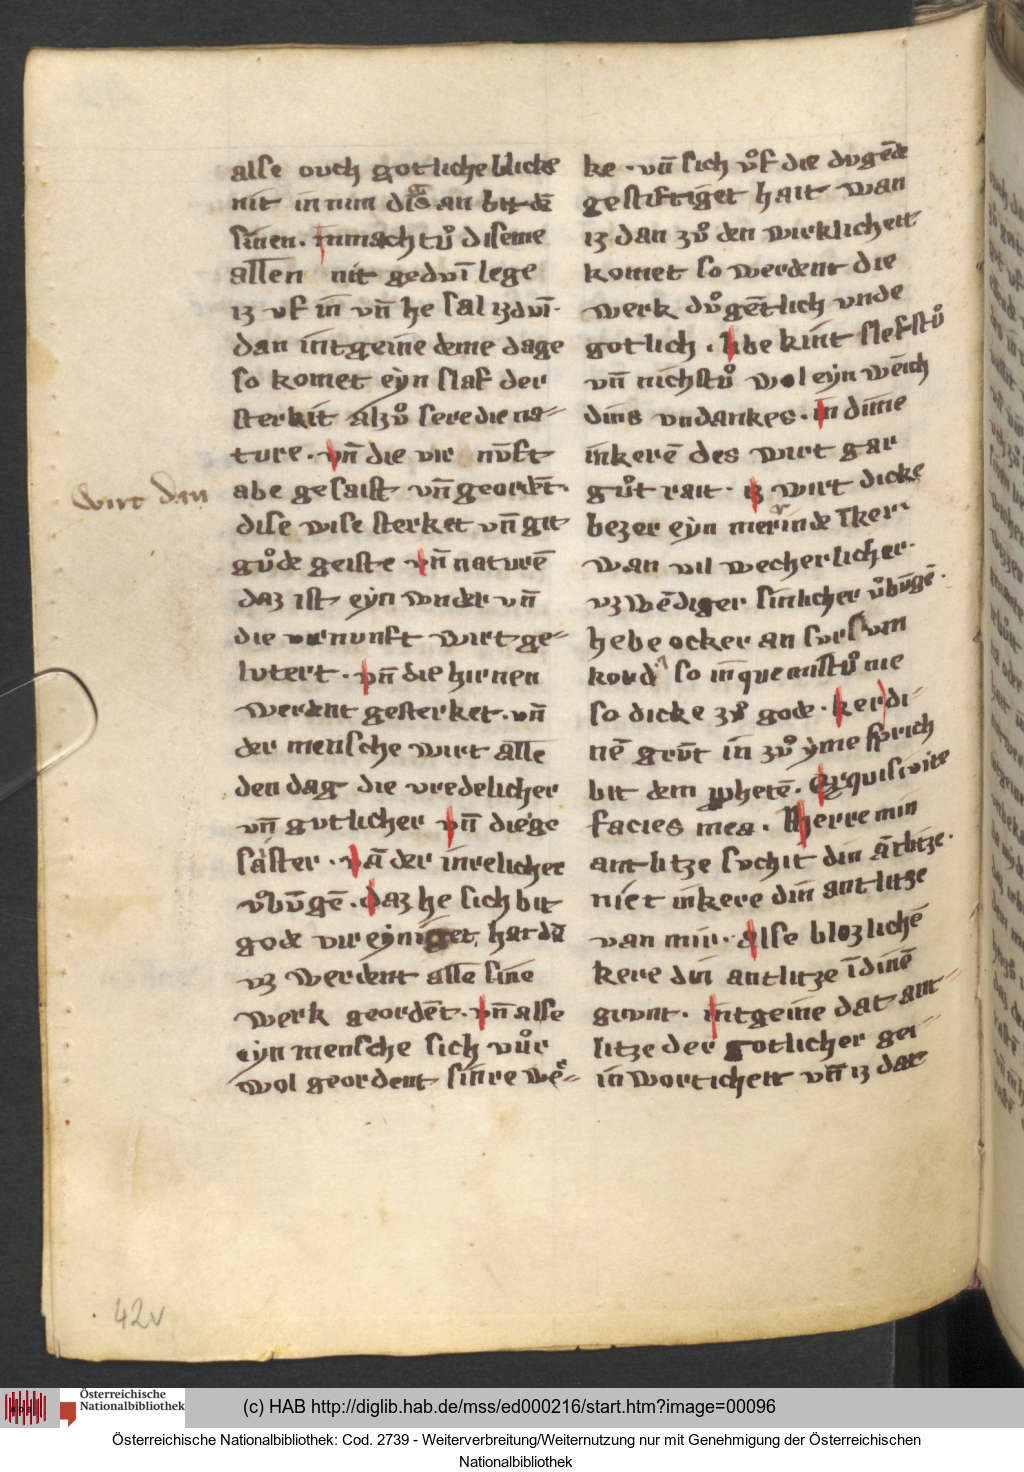 alse ouch gotliche blicke
nit in nim dis an bit dē
sinen. in mach tuͦ diseme
allen nit gedvī lege
iz vf in vn̄ he sal iz dvī.
dan intgeine deme dage
so komet eẏn slaf der
sterkit alzuͦ sere die na-
ture. vn̄ die vir nv̄ft
abe gesaist vn̄ geordēt.
dise wise sterket vn̄ git
guͦde geiste vn̄ naturē
daz ist eẏn wnder vn̄
die vernunft wirt ge-
lutert. vn̄ die hirnen
werdent gesterket. vn̄
der mensche wirt alle
den dag die vredelicher
vn̄ gutlicher vn̄ die ge
saster. vā der inrelicher
vͦbūgē. daz he sich bit
gode vir eẏniget hat dā
vz werdent alle sine
werk geordēt. vn̄ alse
eẏn mensche sich vuͦr
wol geordent sinre we-
wirt dan
ke. vn̄ sich vͦf die dvgēde
gestiftiget hait wan
iz dan zuͦ den wirklicheit
komet so werdent die
werk duͦgētlich vnde
gotlich. libe kint slefstuͦ
vn̄ nichstuͦ wol eẏn wēich
dins vndankes. in dime
inkerē des wirt gar
guͦt rait. iz wirt dicke
bezer eẏn merinde īker
wan vil wecherlicher
vz wēdiger sinlicher vͦbūgē.
hebe ocker an sursum
kord so inqueamstuͦ nie
so dicke zuͦ gode. ker di
nē grūt in zuͦ ẏme sprich
bit dem ꝓphetē. Exquisivite
facies mea. Herre min
antlitze suchit din ātlitze.
niet inkere din antlitze
van mir. alse blozlichē
kere din antlitze ī dinē
grunt. intgeine dat ant
litze der gotlicher gei
in wortichett vn̄ iz dar
42v
(c) HAB http://diglib.hab.de/mss/ed000216/start.htm?image=00096
Österreichische Nationalbibliothek
Österreichische Nationalbibliothek: Cod. 2739 - Weiterverbreitung/Weiternutzung nur mit Genehmigung der Österreichischen
Nationalbibliothek